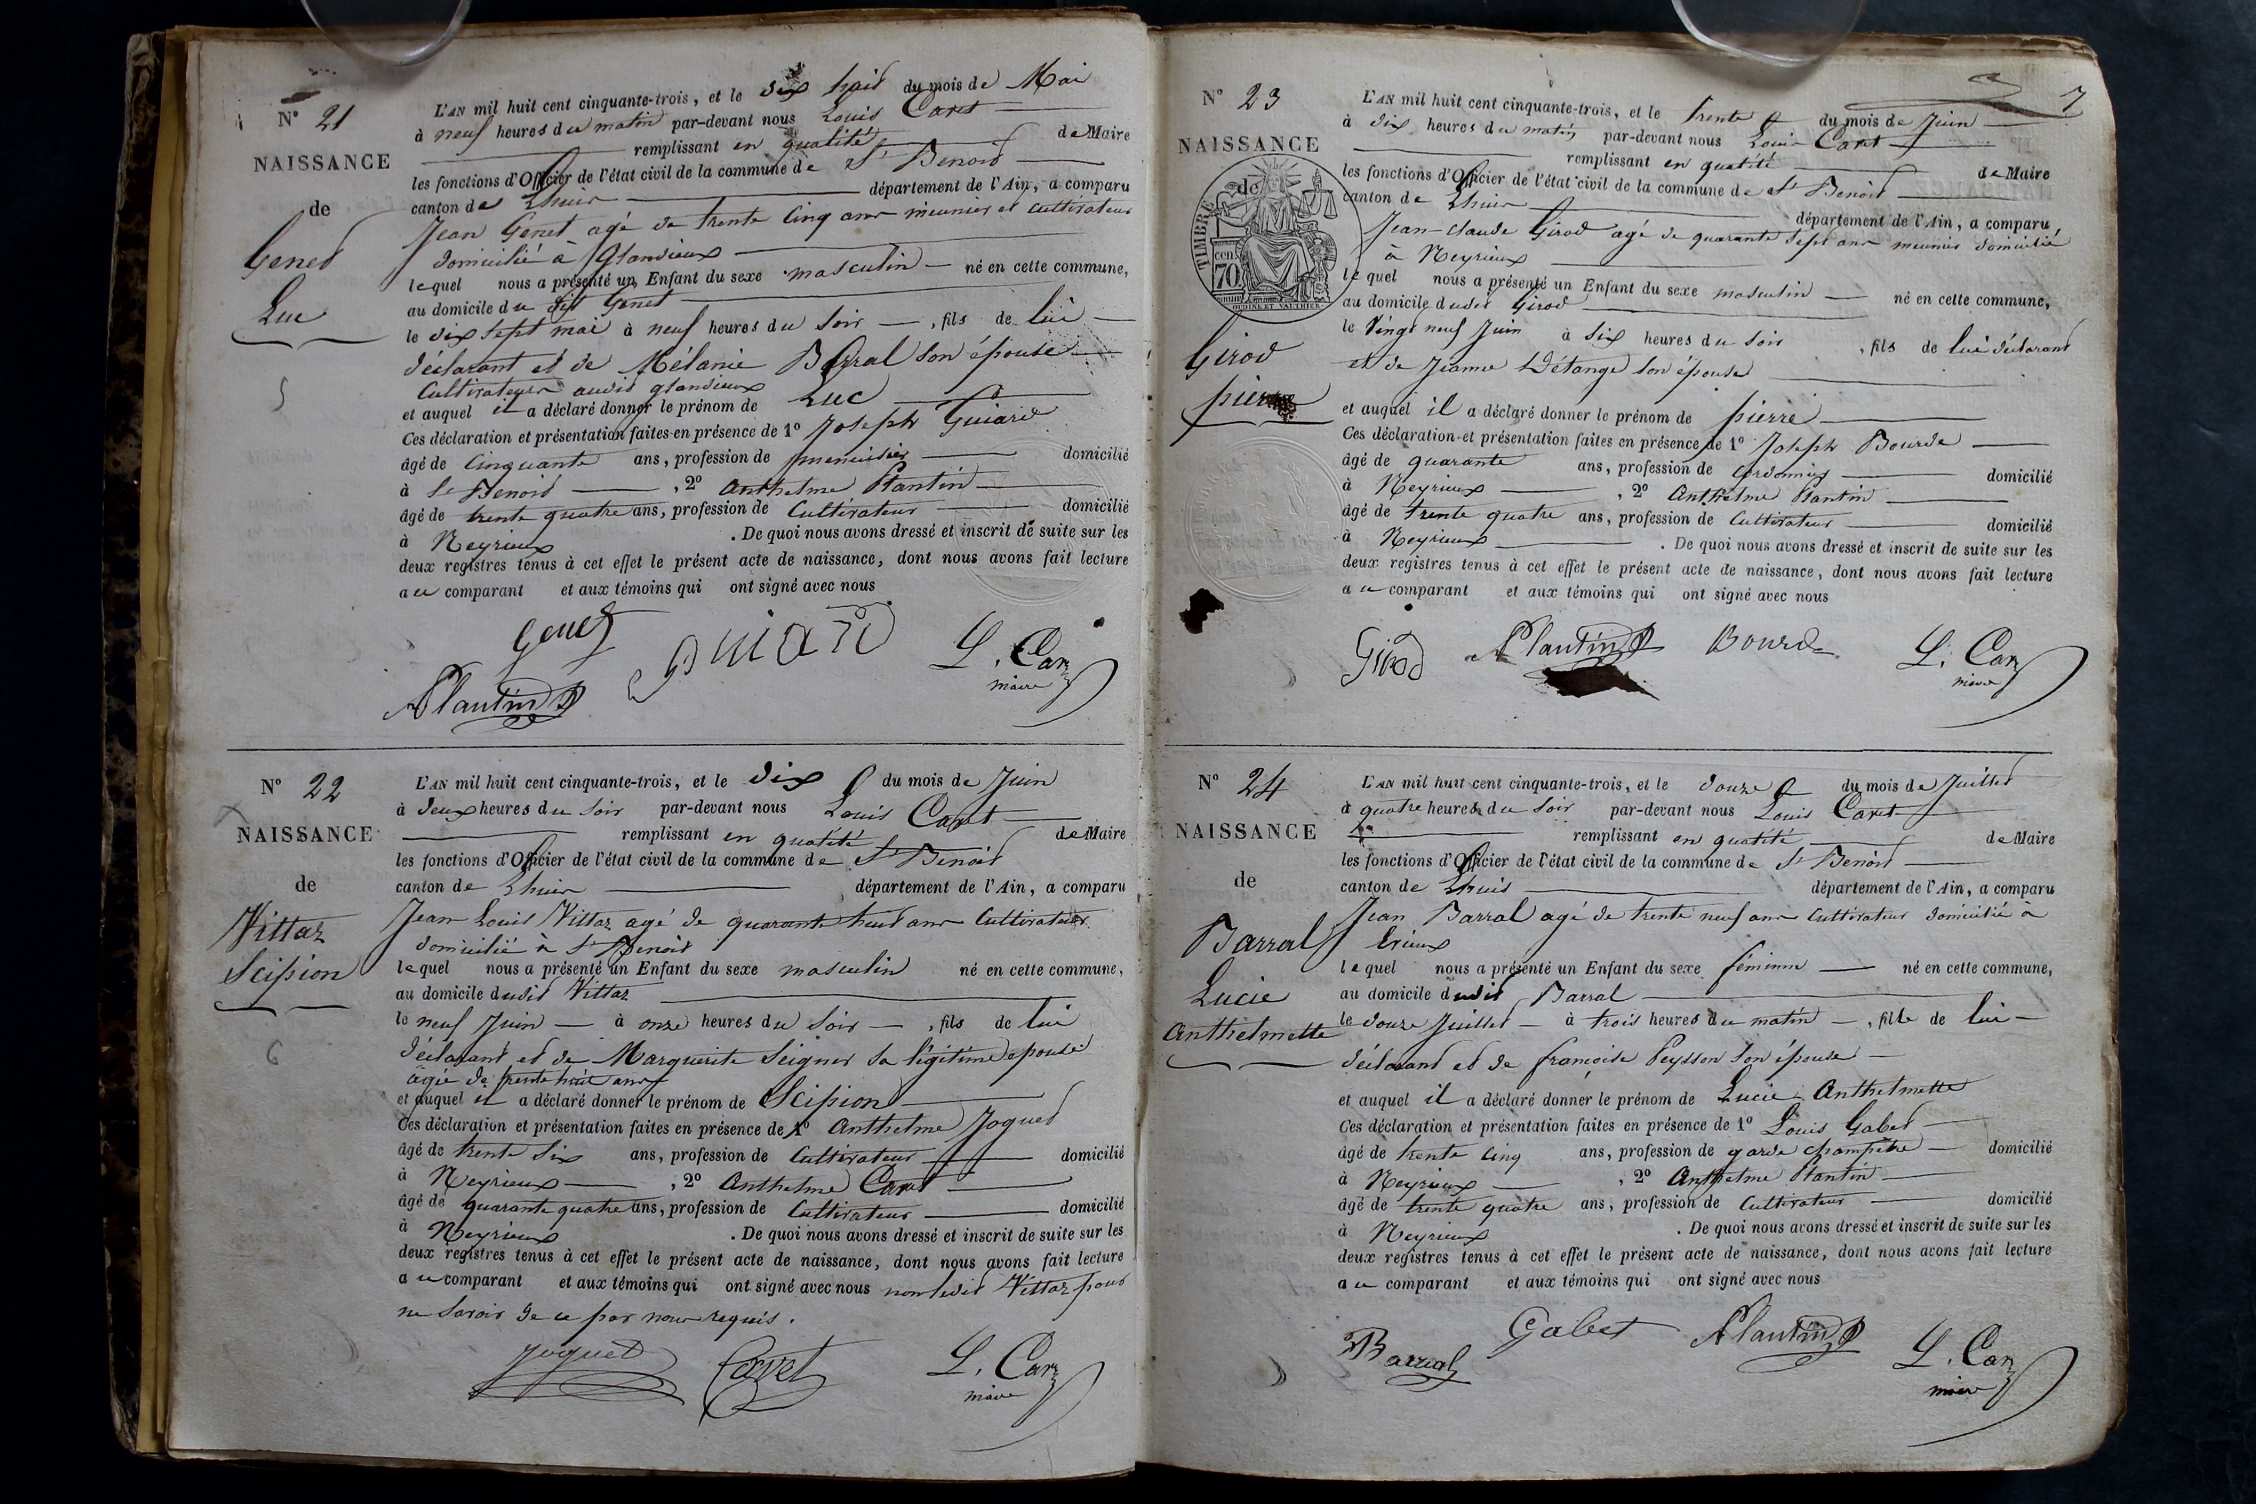 N° 21
NAISSANCE
de
Genet
Luc
5
L'AN mil huit cent cinquante-trois, et le dix huit du mois de Mai
à neuf heures du matin par-devant nous Louis Carret
remplissant en qualité de Maire
les fonctions d'Officier de l'état civil de la commune de St Benoit
canton de Lhuis département de l'Ain, a comparu
Jean Genet agé de trente cinq ans meunier et cultivateur
domicilié à Glandieux
lequel nous a présenté un Enfant du sexe masculin né en cette commune,
au domicile du dit Genet
le dix sept mai à neuf heures du soir, fils de lui
déclarant et de Mélanie Barral son épouse
Cultivateurs audit glandieux
et auquel il a déclaré donner le prénom de Luc
Ces déclaration et présentation faites en présence de 1° Joseph Guiard
âgé de cinquante ans, profession de menuisier domicilié
à St Benoit, 2° Anthelme Plantin
âgé de trente quatre ans, profession de Cultivateur domicilié
à Neyrieux. De quoi nous avons dressé et inscrit de suite sur les
deux registres tenus à cet effet le présent acte de naissance, dont nous avons fait lecture
au comparant et aux témoins qui ont signé avec nous
Genet guiard L. Carr
maire
APlantin
N° 22
NAISSANCE
de
Vittaz
Scipion
6
L'AN mil huit cent cinquante-trois, et le dix du mois de Juin
à deux heures du soir par-devant nous Louis Carret
remplissant en qualité de Maire
les fonctions d'Officier de l'état civil de la commune de St Benoit
canton de Lhuis département de l'Ain, a comparu
Jean Louis Vittaz agé de quarante huit ans Cultivateur
domicilié à St Benoit
lequel nous a présenté un Enfant du sexe masculin né en cette commune,
au domicile dudit Vittaz
le neuf Juin à onze heures du soir, fils de lui
déclarant et de Marguerite Seigner sa légitime epouse
agée de trente huit ans
et auquel il a déclaré donner le prénom de Scipion
Ces déclaration et présentation faites en présence de 1° Anthelme Joguet
âgé de trente six ans, profession de Cultivateur domicilié
à Neyrieux, 2° Anthelme Carret
âgé de quarante quatre ans, profession de Cultivateur domicilié
à Neyrieux. De quoi nous avons dressé et inscrit de suite sur les
deux registres tenus à cet effet le présent acte de naissance, dont nous avons fait lecture
au comparant et aux témoins qui ont signé avec nous non ledit Vittaz pour
ne savoir de ce par nous requis.
joguet Corvet L. Carr
maire
7
N° 23
NAISSANCE
de
TIMBRE
70 cen
Girod
pierre
L'AN mil huit cent cinquante-trois, et le trente du mois de Juin
à dix heures du matin par-devant nous Louis Carret
remplissant en qualité de Maire
les fonctions d'Officier de l'état civil de la commune de St Benoit
canton de Lhuis département de l'Ain, a comparu
Jean-claude Girod agé de quarante sept ans meunier domicilié
à Neyrieux
lequel nous a présenté un Enfant du sexe masculin né en cette commune,
au domicile dudit Girod
le vingt neuf Juin à six heures du soir, fils de lui déclarant
et de Jeanne Détange son épouse
et auquel il a déclaré donner le prénom de pierre
Ces déclaration et présentation faites en présence de 1° Joseph Bourde
âgé de quarante ans, profession de Cordonnier domicilié
à Neyrieux, 2° Anthelme Plantin
âgé de trente quatre ans, profession de Cultivateur domicilié
à Neyrieux. De quoi nous avons dressé et inscrit de suite sur les
deux registres tenus à cet effet le présent acte de naissance, dont nous avons fait lecture
au comparant et aux témoins qui ont signé avec nous
Girod APlantin Bourde L. Carr
maire
N° 24
NAISSANCE
de
Barral
Lucie
Anthelmette
L'AN mil huit cent cinquante-trois, et le douze du mois de Juillet
à quatre heures du soir par-devant nous Louis Carret
remplissant en qualité de Maire
les fonctions d'Officier de l'état civil de la commune de St Benoit
canton de Lhuis département de l'Ain, a comparu
Jean Barral agé de trente neuf ans Cultivateur domicilié à
Erieux
lequel nous a présenté un Enfant du sexe féminin né en cette commune,
au domicile dudit Barral
le douze Juillet à trois heures du matin, fille de lui
déclarant et de françoise Peysson son épouse
et auquel il a déclaré donner le prénom de Lucie Anthelmette
Ces déclaration et présentation faites en présence de 1° Louis Gabet
âgé de trente cinq ans, profession de garde champêtre domicilié
à Neyrieux, 2° Anthelme Plantin
âgé de trente quatre ans, profession de Cultivateur domicilié
à Neyrieux. De quoi nous avons dressé et inscrit de suite sur les
deux registres tenus à cet effet le présent acte de naissance, dont nous avons fait lecture
au comparant et aux témoins qui ont signé avec nous
Barral Gabet APlantin L. Carr
maire